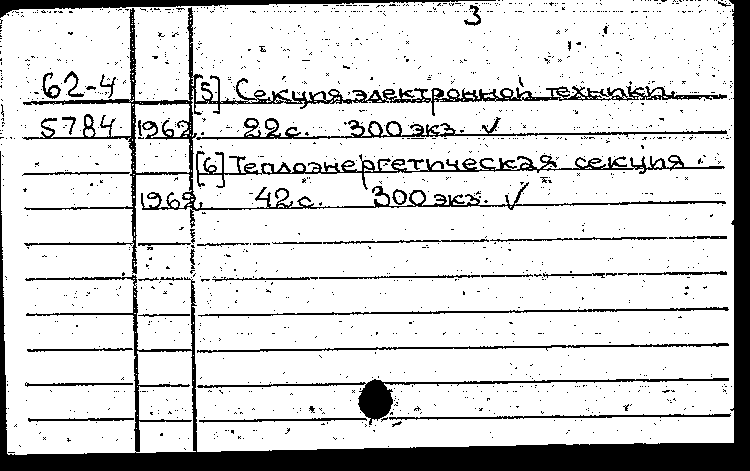 3
62-4 [5] Секция электронной техники.
5784 1962. 22 с. 300 экз. ✓
[6] Теплоэнергетическая секция.
1962. 42 с. 300 экз. ✓